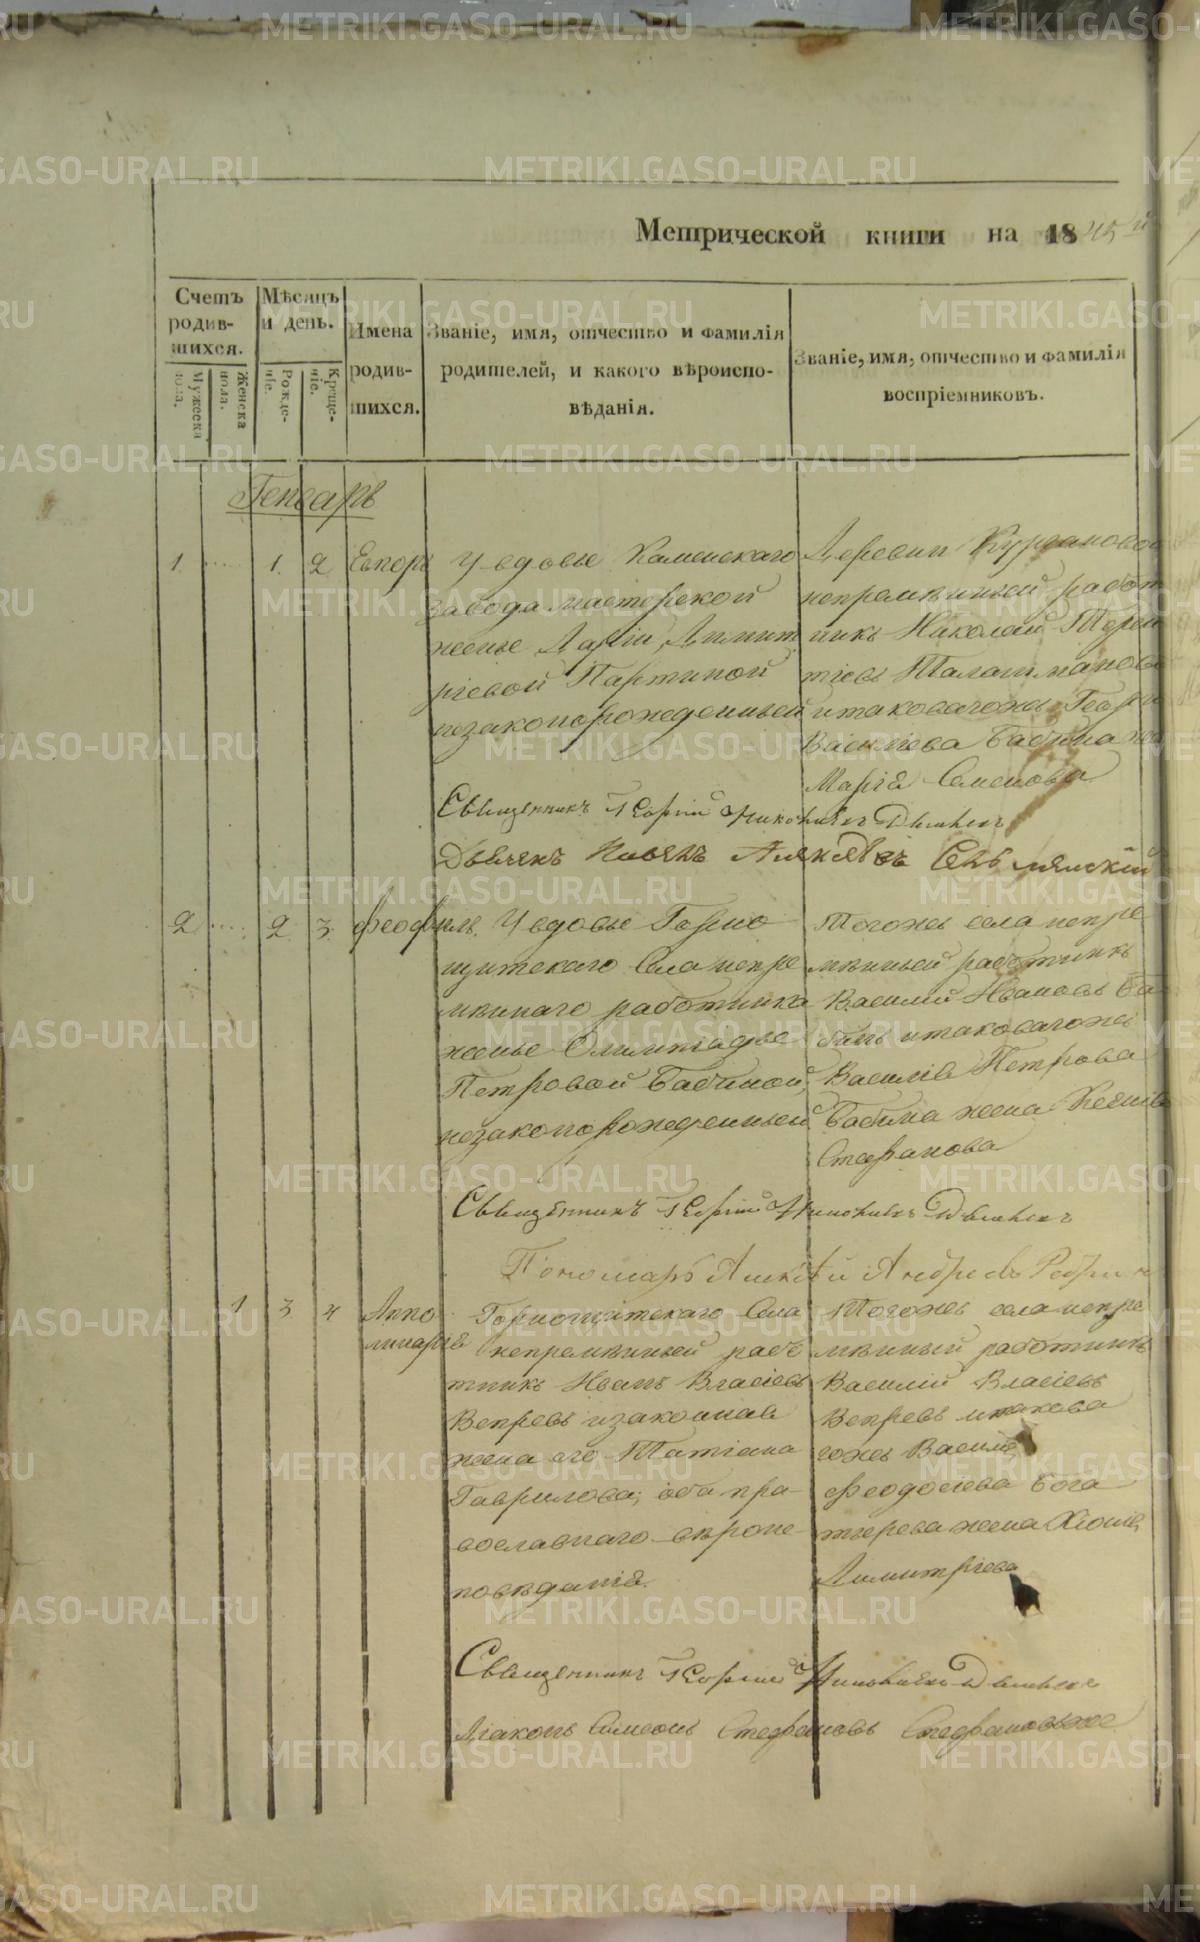 METRIKI.GASO-URAL.RU
Метрической книги на 1845й
Счетъ родив-шихся.
Мужеска пола.
Женска пола.
Мѣсяцъ и день.
Рожде-ніе.
Креще-ніе.
Имена родив-шихся.
Званіе, имя, отчество и фамилія
родителей, и какого вѣроиспо-
вѣданія.
Званіе, имя, отчество и фамилія
воспріемниковъ.
Генварь
1 .... 1. 2
У вдовы Каменскаго
завода мастерской
жены Даріи Димит
ріевой Партиной
незаконорожденный
Деревни Кургановой
непремѣнный работ
никъ Николай Терен
тіевъ Талашманова
и таковагожъ Георгія
Василіева Бабина же
Марія Семенова
Священникъ Георгій
Дьячекъ
2 .... 2. 3. Феофилъ.
У вдовы Горно
щитскаго села непре
мѣннаго работника
жены Олимпіады
Петровой Бабиной,
незаконорожденный
Тогожъ села непре
мѣнный работникъ
Василій Ивановъ Ба
бинъ и таковагожъ
Василія Петрова
Бабина жена Ксенія
Стефанова
Священникъ Георгій
Пономарь Алексѣй Андреевъ
1 3 4 Апполинарія
Горнощитскаго Села
непремѣнный рабо
тникъ Иванъ Власіевъ
Вепревъ и законная
жена его Татіана
Гаврилова, оба пра-
вославнаго вѣроис-
повѣданія.
Тогожъ села непре
мѣнный работникъ
Василій Власіевъ
Вепревъ и такова
гожъ Василія
Феодосіева Бога
тырева жена Хіонія
Димитріева
Священникъ Георгій
Діаконъ Симеонъ Стефановъ Стефановъ